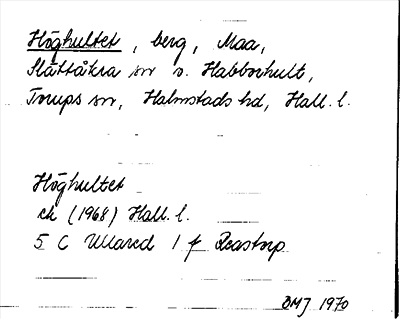 Höghultet, berg, Maa,
Slättåkra sn v. Habborhult,
Torups sn, Halmstads hd, Hall. l.
Höghultet
ek (1968) Hall. l.
5 C Ullared 1 f Reastorp
BMJ 1970